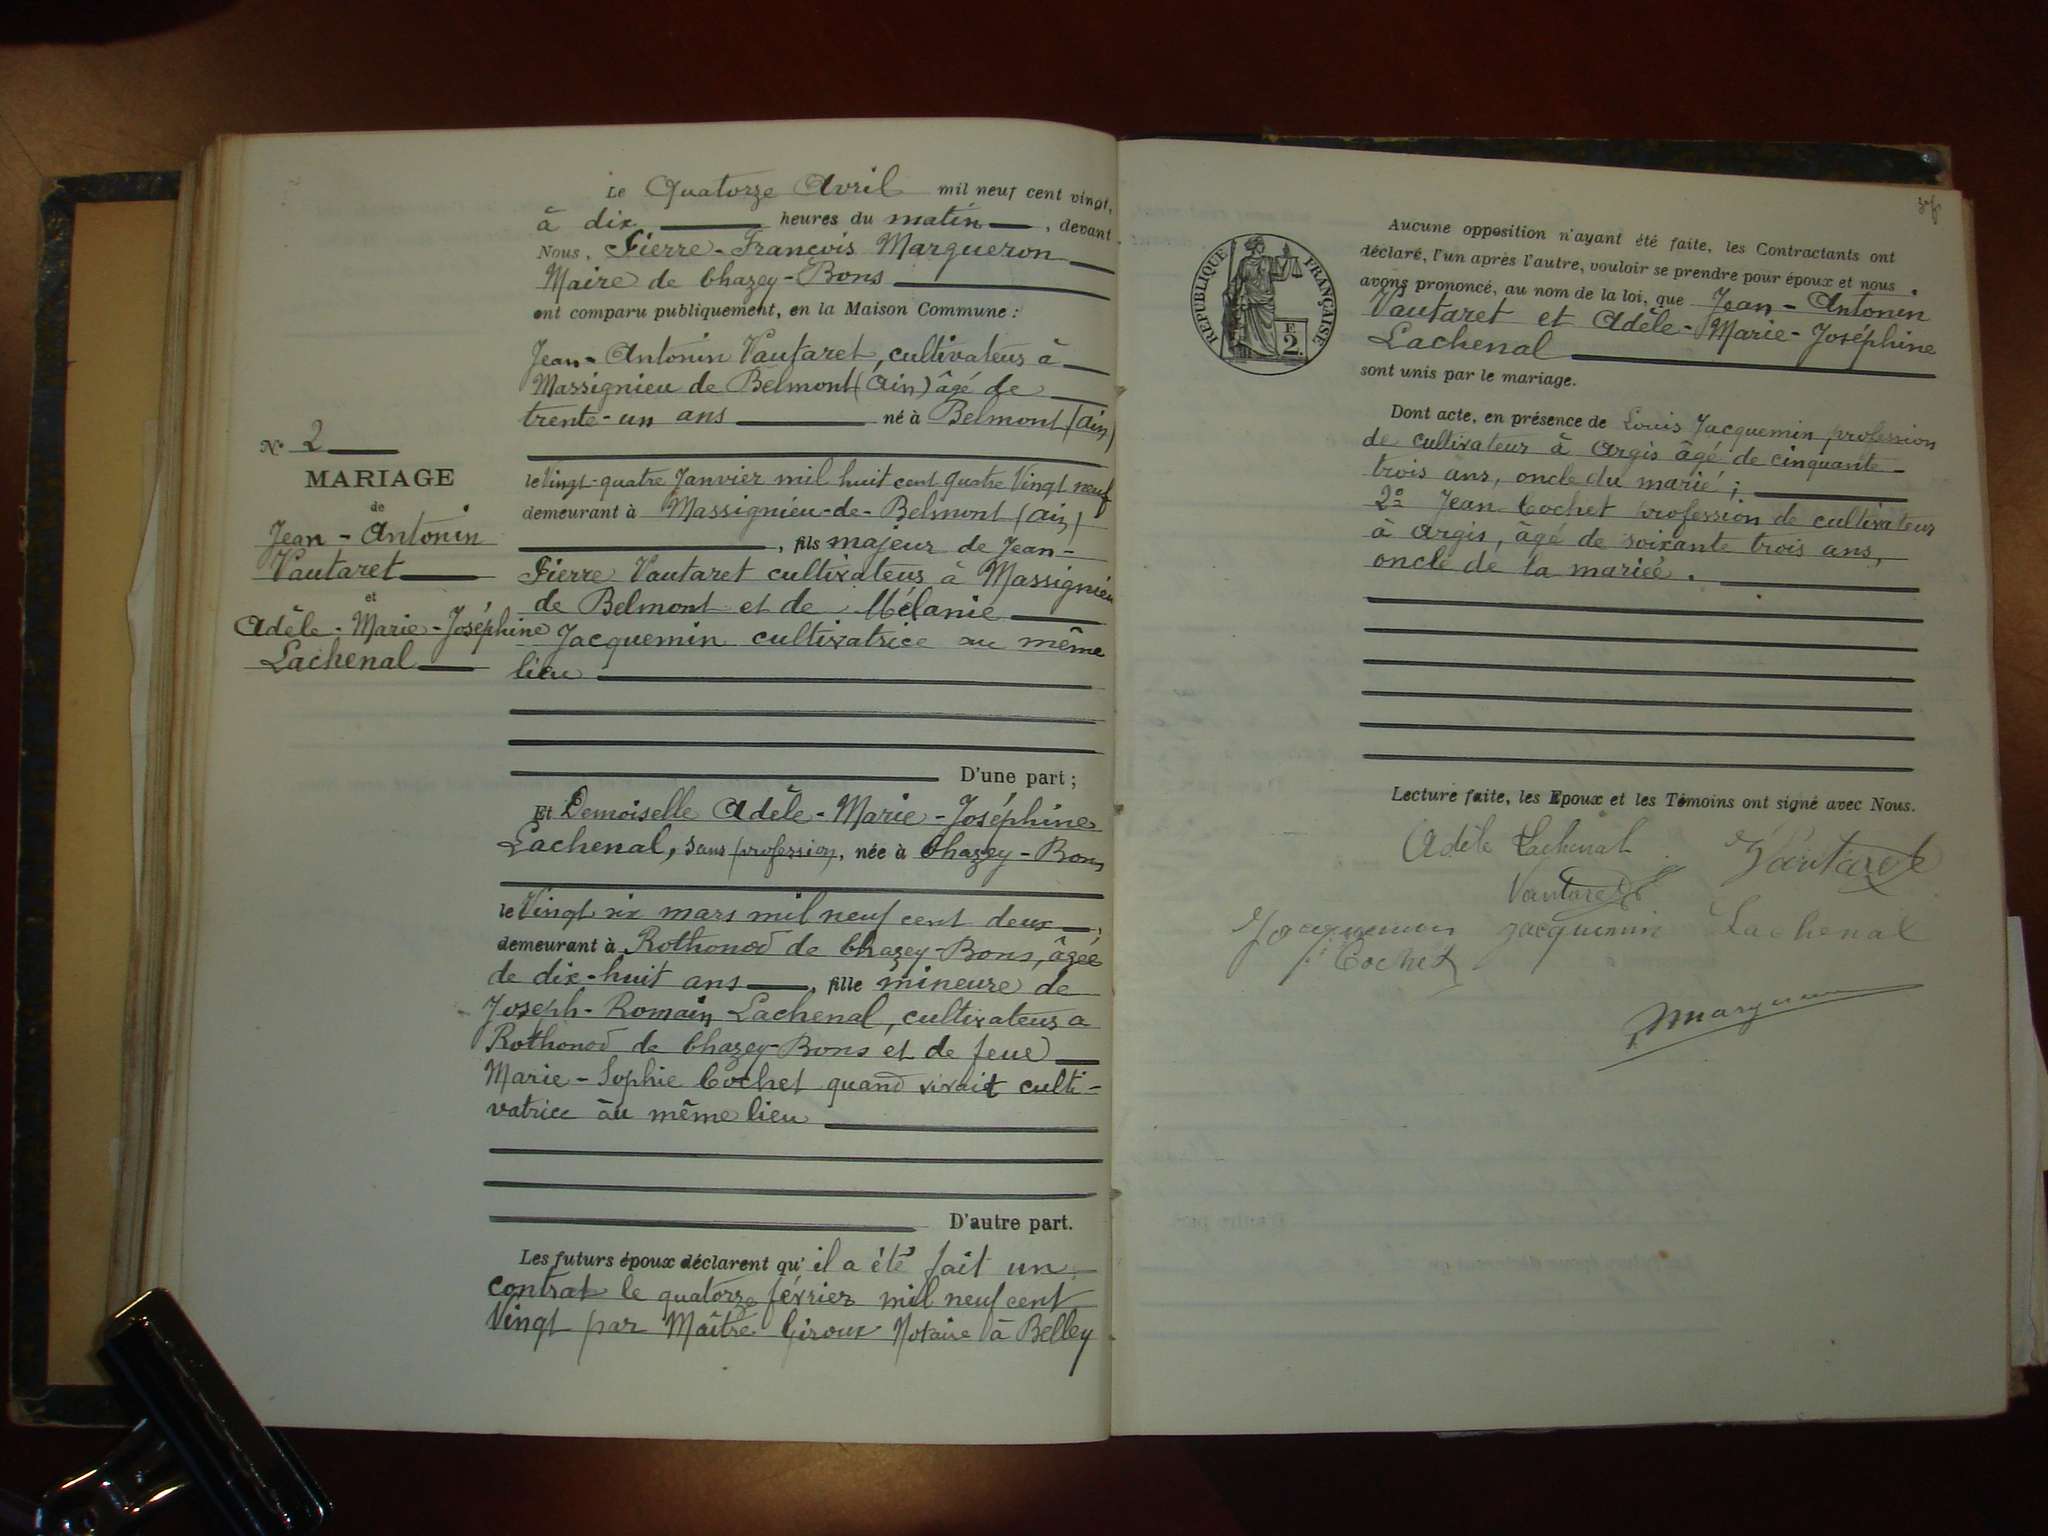 Le Quatorze Avril mil neuf cent vingt,
à dix heures du matin, devant
Nous, Pierre-François Margueron
Maire de Chazey-Bons
ont comparu publiquement, en la Maison Commune :
Jean-Antonin Vautaret, cultivateur à
Massignieu de Belmont (Ain) âgé de
trente-un ans né à Belmont (Ain)
le Vingt-quatre Janvier mil huit cent quatre Vingt neuf
demeurant à Massignieu-de-Belmont (Ain)
, fils majeur de Jean-
Pierre Vautaret cultivateur à Massignieu
de Belmont et de Mélanie
Jacquemin cultivatrice au même
lieu
D'une part ;
Et Demoiselle Adèle-Marie-Joséphine
Lachenal, sans profession, née à Chazey-Bons
le Vingt six mars mil neuf cent deux,
demeurant à Rothonod de Chazey-Bons, âgée
de dix-huit ans, fille mineure de
Joseph-Romain Lachenal, cultivateur a
Rothonod de Chazey-Bons et de feue
Marie-Sophie Cochet quand vivait culti-
vatrice au même lieu
D'autre part.
Les futurs époux déclarent qu'il a été fait un
contrat le quatorze février mil neuf cent
Vingt par Maître Giroux Notaire à Belley
N° 2
MARIAGE
de
Jean-Antonin
Vautaret
et
Adèle-Marie-Joséphine
Lachenal
RÉPUBLIQUE FRANÇAISE
F
2.
Aucune opposition n'ayant été faite, les Contractants ont
déclaré, l'un après l'autre, vouloir se prendre pour époux et nous
avons prononcé, au nom de la loi, que Jean-Antonin
Vautaret et Adèle-Marie-Joséphine
Lachenal
sont unis par le mariage.
Dont acte, en présence de Louis Jacquemin, profession
de cultivateur à Argis âgé de cinquante-
trois ans, oncle du marié ;
2° Jean Cochet profession de cultivateur
à Argis, âgé de soixante trois ans,
oncle de la mariée.
Lecture faite, les Epoux et les Témoins ont signé avec Nous.
Adèle Lachenal Vautaret
Vautaret
Jacquemin Jacquemin Lachenal
Cochet